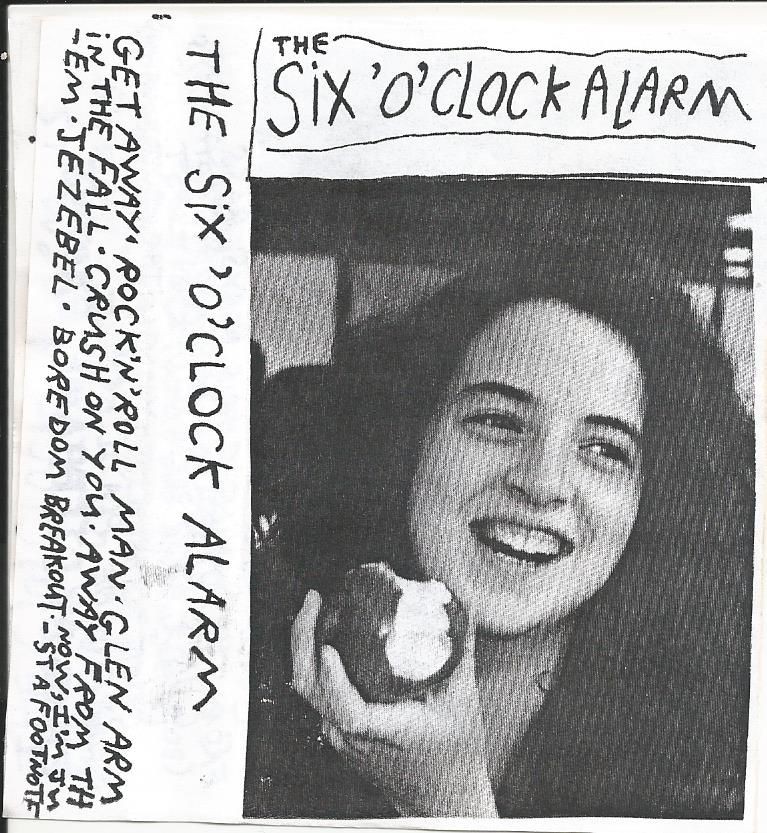 THE
SiX 'O'CLOCK ALARM
THE SiX 'O'CLOCK ALARM
GET AWAY· ROCK'N'ROLL MAN· GLEN ARM
iN THE FALL· CRUSH ON YOU· AWAY FROM TH
-EM· JEZEBEL· BOREDOM BREAKOUT· NOW, I'M JU
-ST A FOOTNOTE